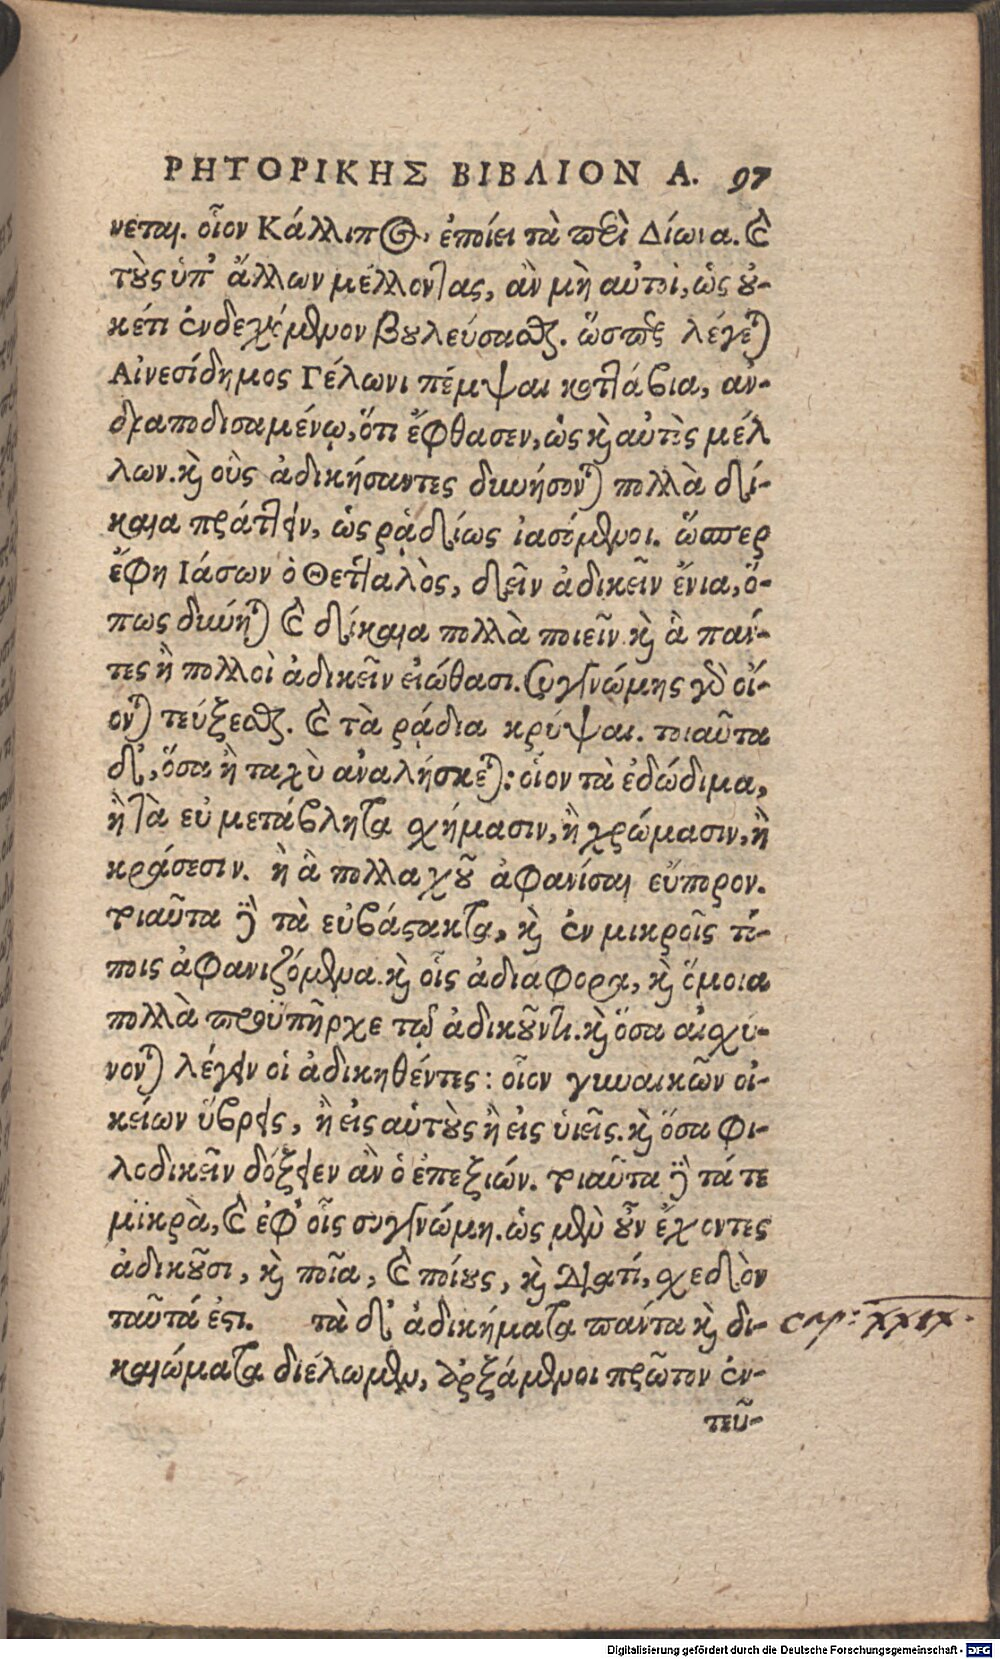 ΡΗΤΟΡΙΚΗΣ ΒΙΒΛΙΟΝ Α. 97
νεται. οἷον Κάλλιπος, ἐποίει τὰ περὶ Δίωνα. καὶ
τοὺς ὑπ' ἄλλων μέλλοντας, ἂν μὴ αὐτοὶ, ὡς οὐ-
κέτι ἐνδεχόμενον βουλεύσασθαι. ὥσπερ λέγεται
Αἰνεσίδημος Γέλωνι πέμψαι κοττάβια, ἀν-
δραποδισαμένῳ, ὅτι ἔφθασεν, ὡς καὶ αὐτὸς μέλ
λων. καὶ οὓς ἀδικήσαντες δυνήσονται πολλὰ δί-
καια πράττειν, ὡς ῥᾳδίως ἰασόμενοι. ὥσπερ
ἔφη Ιάσων ὁ Θετταλὸς, δεῖν ἀδικεῖν ἔνια, ὅ-
πως δύνηται καὶ δίκαια πολλὰ ποιεῖν. καὶ ἃ πάν-
τες ἢ πολλοὶ ἀδικεῖν εἰώθασι. συγγνώμης γὰρ οἴ-
ονται τεύξεσθαι. καὶ τὰ ῥᾴδια κρύψαι. τοιαῦτα
δ', ὅσα ἢ ταχὺ ἀναλήσκεται: οἷον τὰ ἐδώδιμα,
ἢ τὰ εὐμετάβλητα σχήμασιν, ἢ χρώμασιν, ἢ
κράσεσιν. ἢ ἃ πολλαχοῦ ἀφανίσαι εὔπορον.
τοιαῦτα δὲ τὰ εὐβάστακτα, καὶ ἐν μικροῖς τό-
ποις ἀφανιζόμενα. καὶ οἷς ἀδιάφορα, καὶ ὅμοια
πολλὰ προϋπῆρχε τῷ ἀδικοῦντι. καὶ ὅσα αἰσχύ-
νονται λέγειν οἱ ἀδικηθέντες: οἷον γυναικῶν οἰ-
κείων ὕβρεις, ἢ εἰς αὑτοὺς ἢ εἰς υἱεῖς. καὶ ὅσα φι-
λοδικεῖν δόξειεν ἂν ὁ ἐπεξιών. τοιαῦτα δὲ τά τε
μικρὰ, καὶ ἐφ' οἷς συγγνώμη. ὡς μὲν οὖν ἔχοντες
ἀδικοῦσι, καὶ ποῖα, καὶ ποίους, καὶ διατί, σχεδὸν
ταῦτά ἐστι. τὰ δ' ἀδικήματα πάντα καὶ δι-
καιώματα διέλωμεν, ἀρξάμενοι πρῶτον ἐν-
τεῦ-
cap: XXIX.
Digitalisierung gefördert durch die Deutsche Forschungsgemeinschaft - DFG